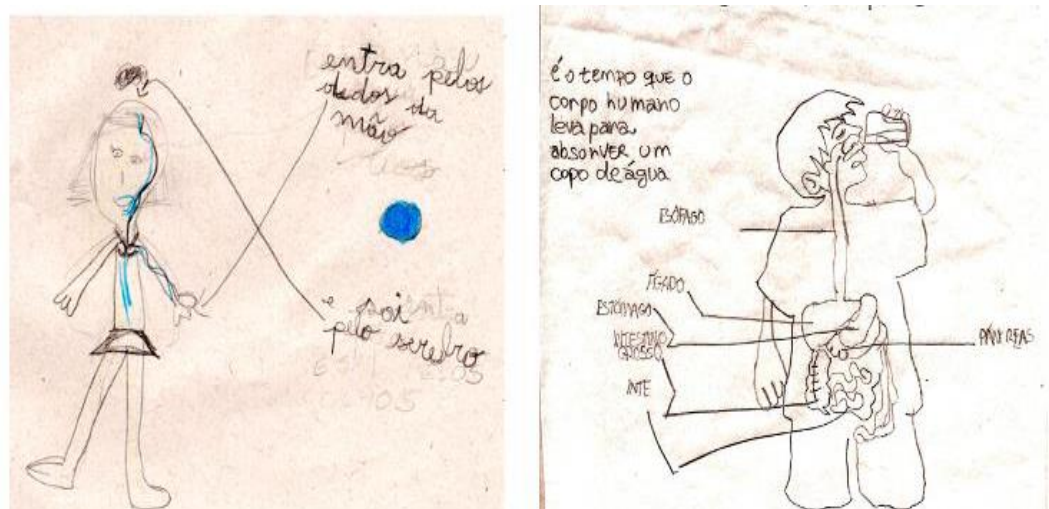 entra pelos
dedos da
mão
e soi
pelo serebro
é o tempo que o
corpo humano
leva para
absorver um
copo de água
ESÔFAGO
FÍGADO
ESTÔMAGO
INTESTINO
GROSSO
INTE
PÂNCREAS